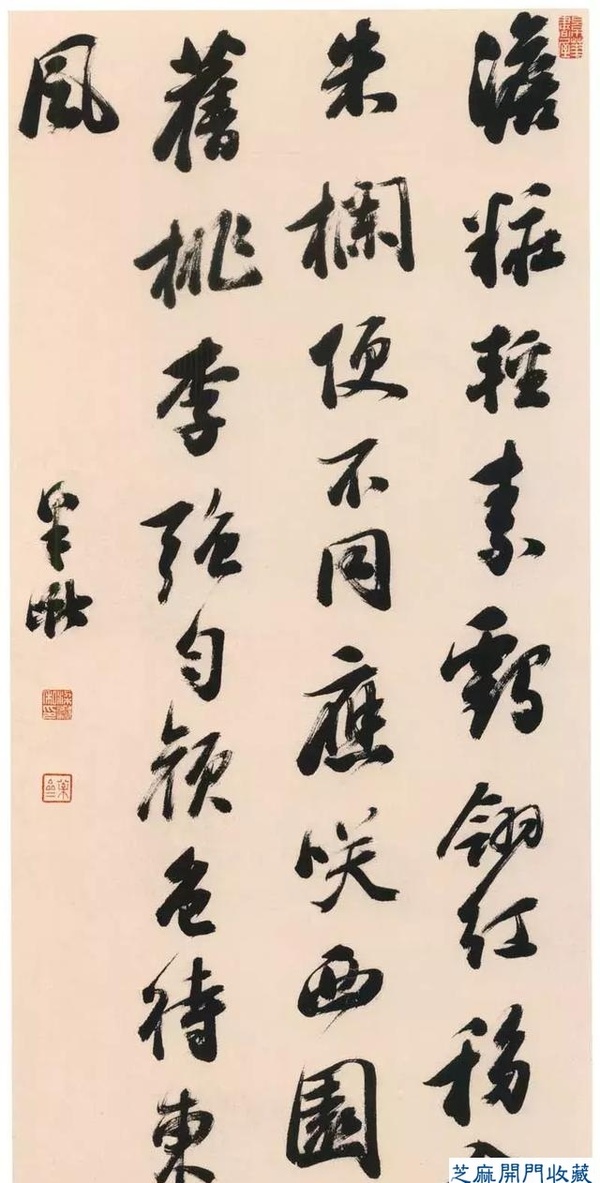 澹粧輕素鶴翎紅移入
朱欄便不同應咲西園
舊桃李强匀顏色待東
風
芝麻開門收藏